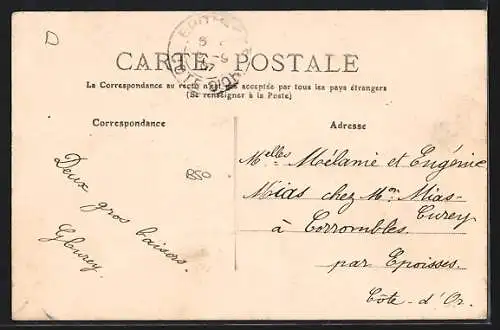 D
CARTE POSTALE
La Correspondance au recto n'est pas acceptée par tous les pays étrangers
(Se renseigner à la Poste)
Correspondance
Adresse
850
Deux gros baisers.
GCurey.
Melles Mélanie et Eugénie
Mias chez Mon Mias-
Curey
à Corrombles.
par Epoisses.
Côte-d'Or.